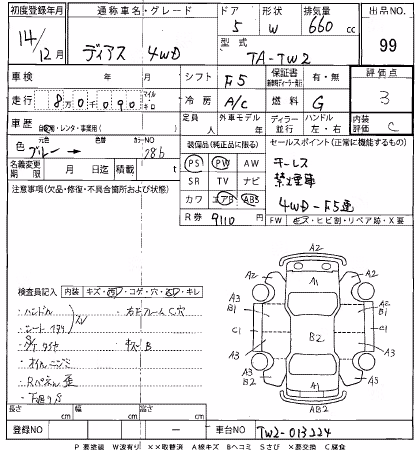 初度登録年月 通称車名・グレード ドア 形状 排気量 出品NO.
14/12月 ディアス 4WD 5 W 660 cc 99
型式 TA-TW2
車検 年 月 シフト F5 保証書 有・無 評価点
走行 8万0千090 マイル キロ 冷房 A/C 燃料 G 3
車歴 自家用・レンタ・事業用( ) 定員 人 外車モデル 年 ディーラー 並行 ハンドル 左・右 内装評価 C
色 元色 ブルー → カラーNO 28b 装備品(純正品に限る) セールスポイント(正常に機能するもの)
名義変更期限 月 日迄 積載 t PS PW AW キーレス
注意事項(欠品・修復・不具合箇所および状態) SR TV ナビ 禁煙車
カワ エアB ABS 4WD-F5速
R券 9110 FW キズ・ヒビ割・リペア跡・X要
検査員記入 内装 キズ・凹・コゲ・穴・汚・キレ
ハンドル スレ カドフレーム C穴
シート
タイヤ キズ B
オイルニジミ
Rパネル 歪
下廻りS
A2
A2 A1 A2
A3 B1 A3 B1
C1 B2 C1
A3 A3
A3 B2 A1 A5
AB2
長さ cm 幅 cm 高さ cm
登録NO - 車台NO TW2-013224
P 要塗装 W波有り ××取替済 A線キズ Bヘコミ Sさび ×要交換 C腐食